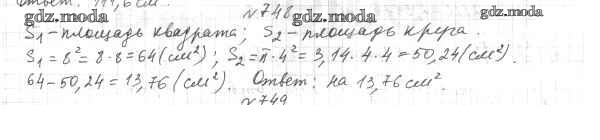 Ответ: 111,6 см.
№748
gdz.moda gdz.moda gdz.moda
S₁-площадь квадрата; S₂-площадь круга.
S₁=8²=8·8=64(см²); S₂=π·4²=3,14·4·4=50,24(см²).
64-50,24=13,76(см²). Ответ: на 13,76 см².
№749